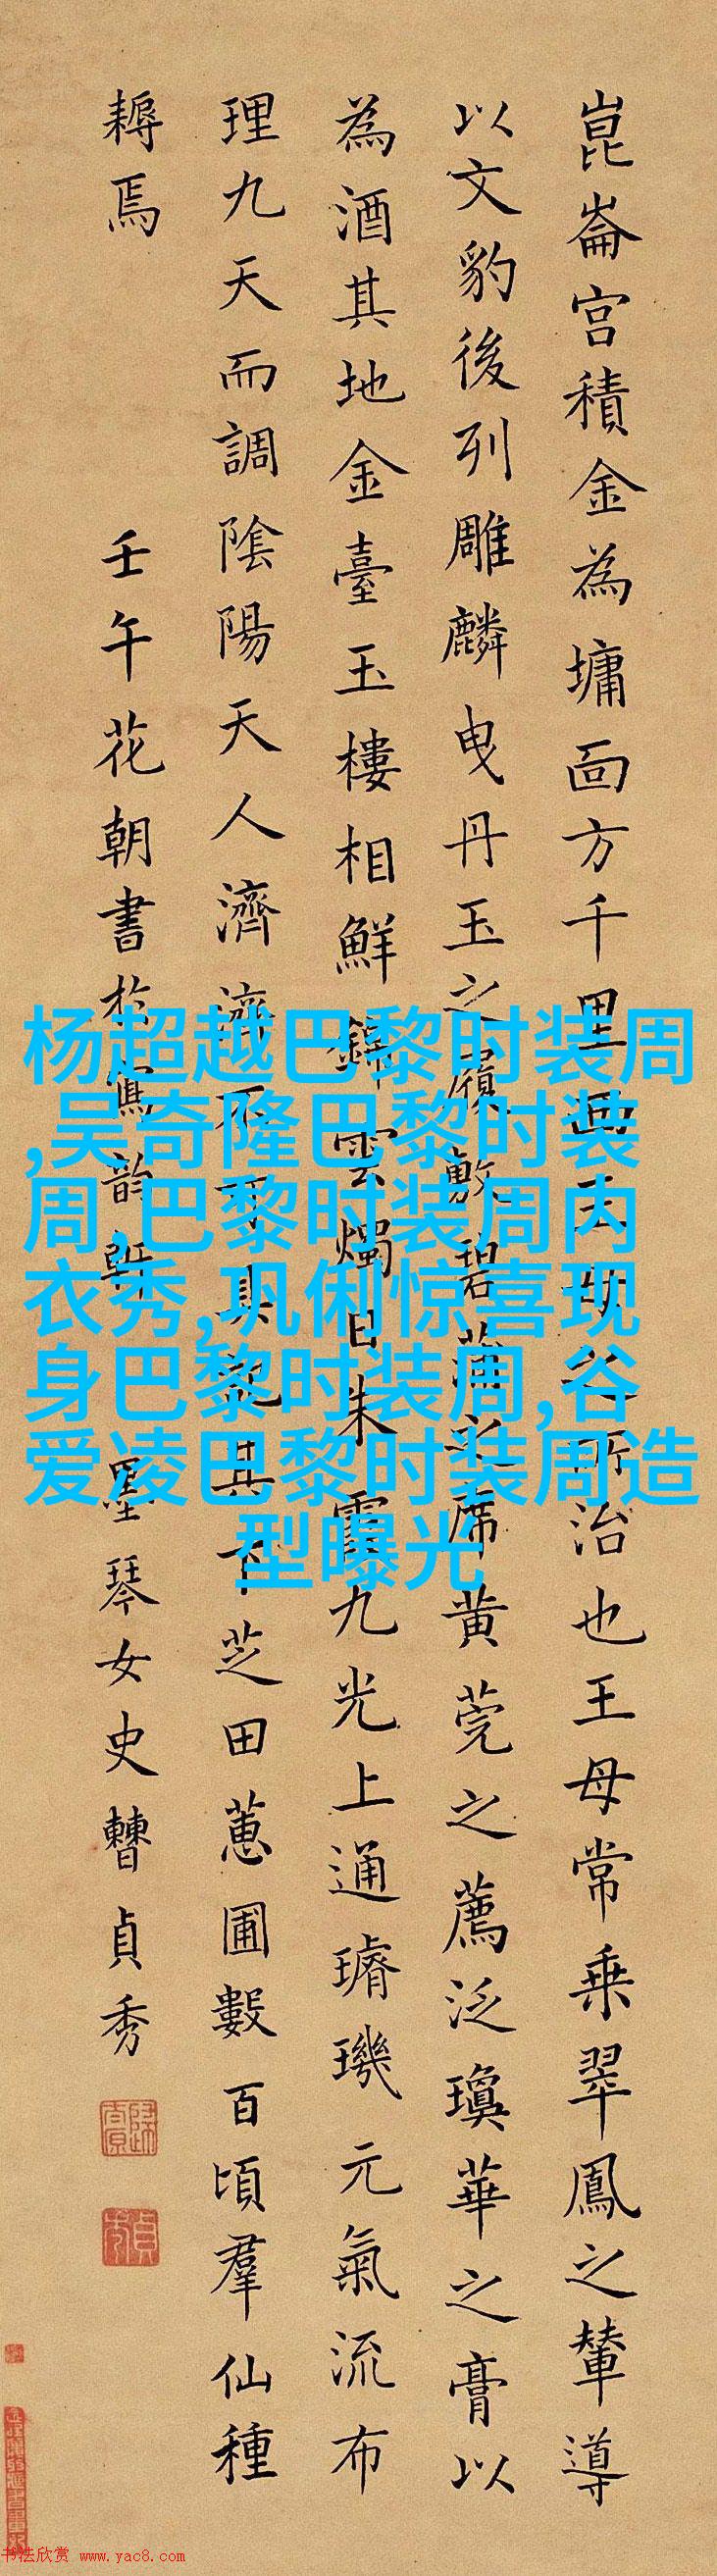 崑崙宮積金為墉面方千里西王母之所治也王母常乗翠鳳之輦導
以文豹後列雕麟曳丹玉之履敷碧蒲之席黃莞之薦泛瓊華之膏以
為酒其地金臺玉樓相鮮錦雲燭日朱霞九光上通璿璣元氣流布
理九天而調隂陽天人濟濟不可具記其下芝田蕙圃數百頃羣仙種
耨焉 壬午花朝書於寫韵軒 墨琴女史曹貞秀
杨超越巴黎时装周
,吴奇隆巴黎时装
周,巴黎时装周内
衣秀,巩俐惊喜现
身巴黎时装周,谷
爱凌巴黎时装周造
型曝光
书法欣赏 www.yac8.com